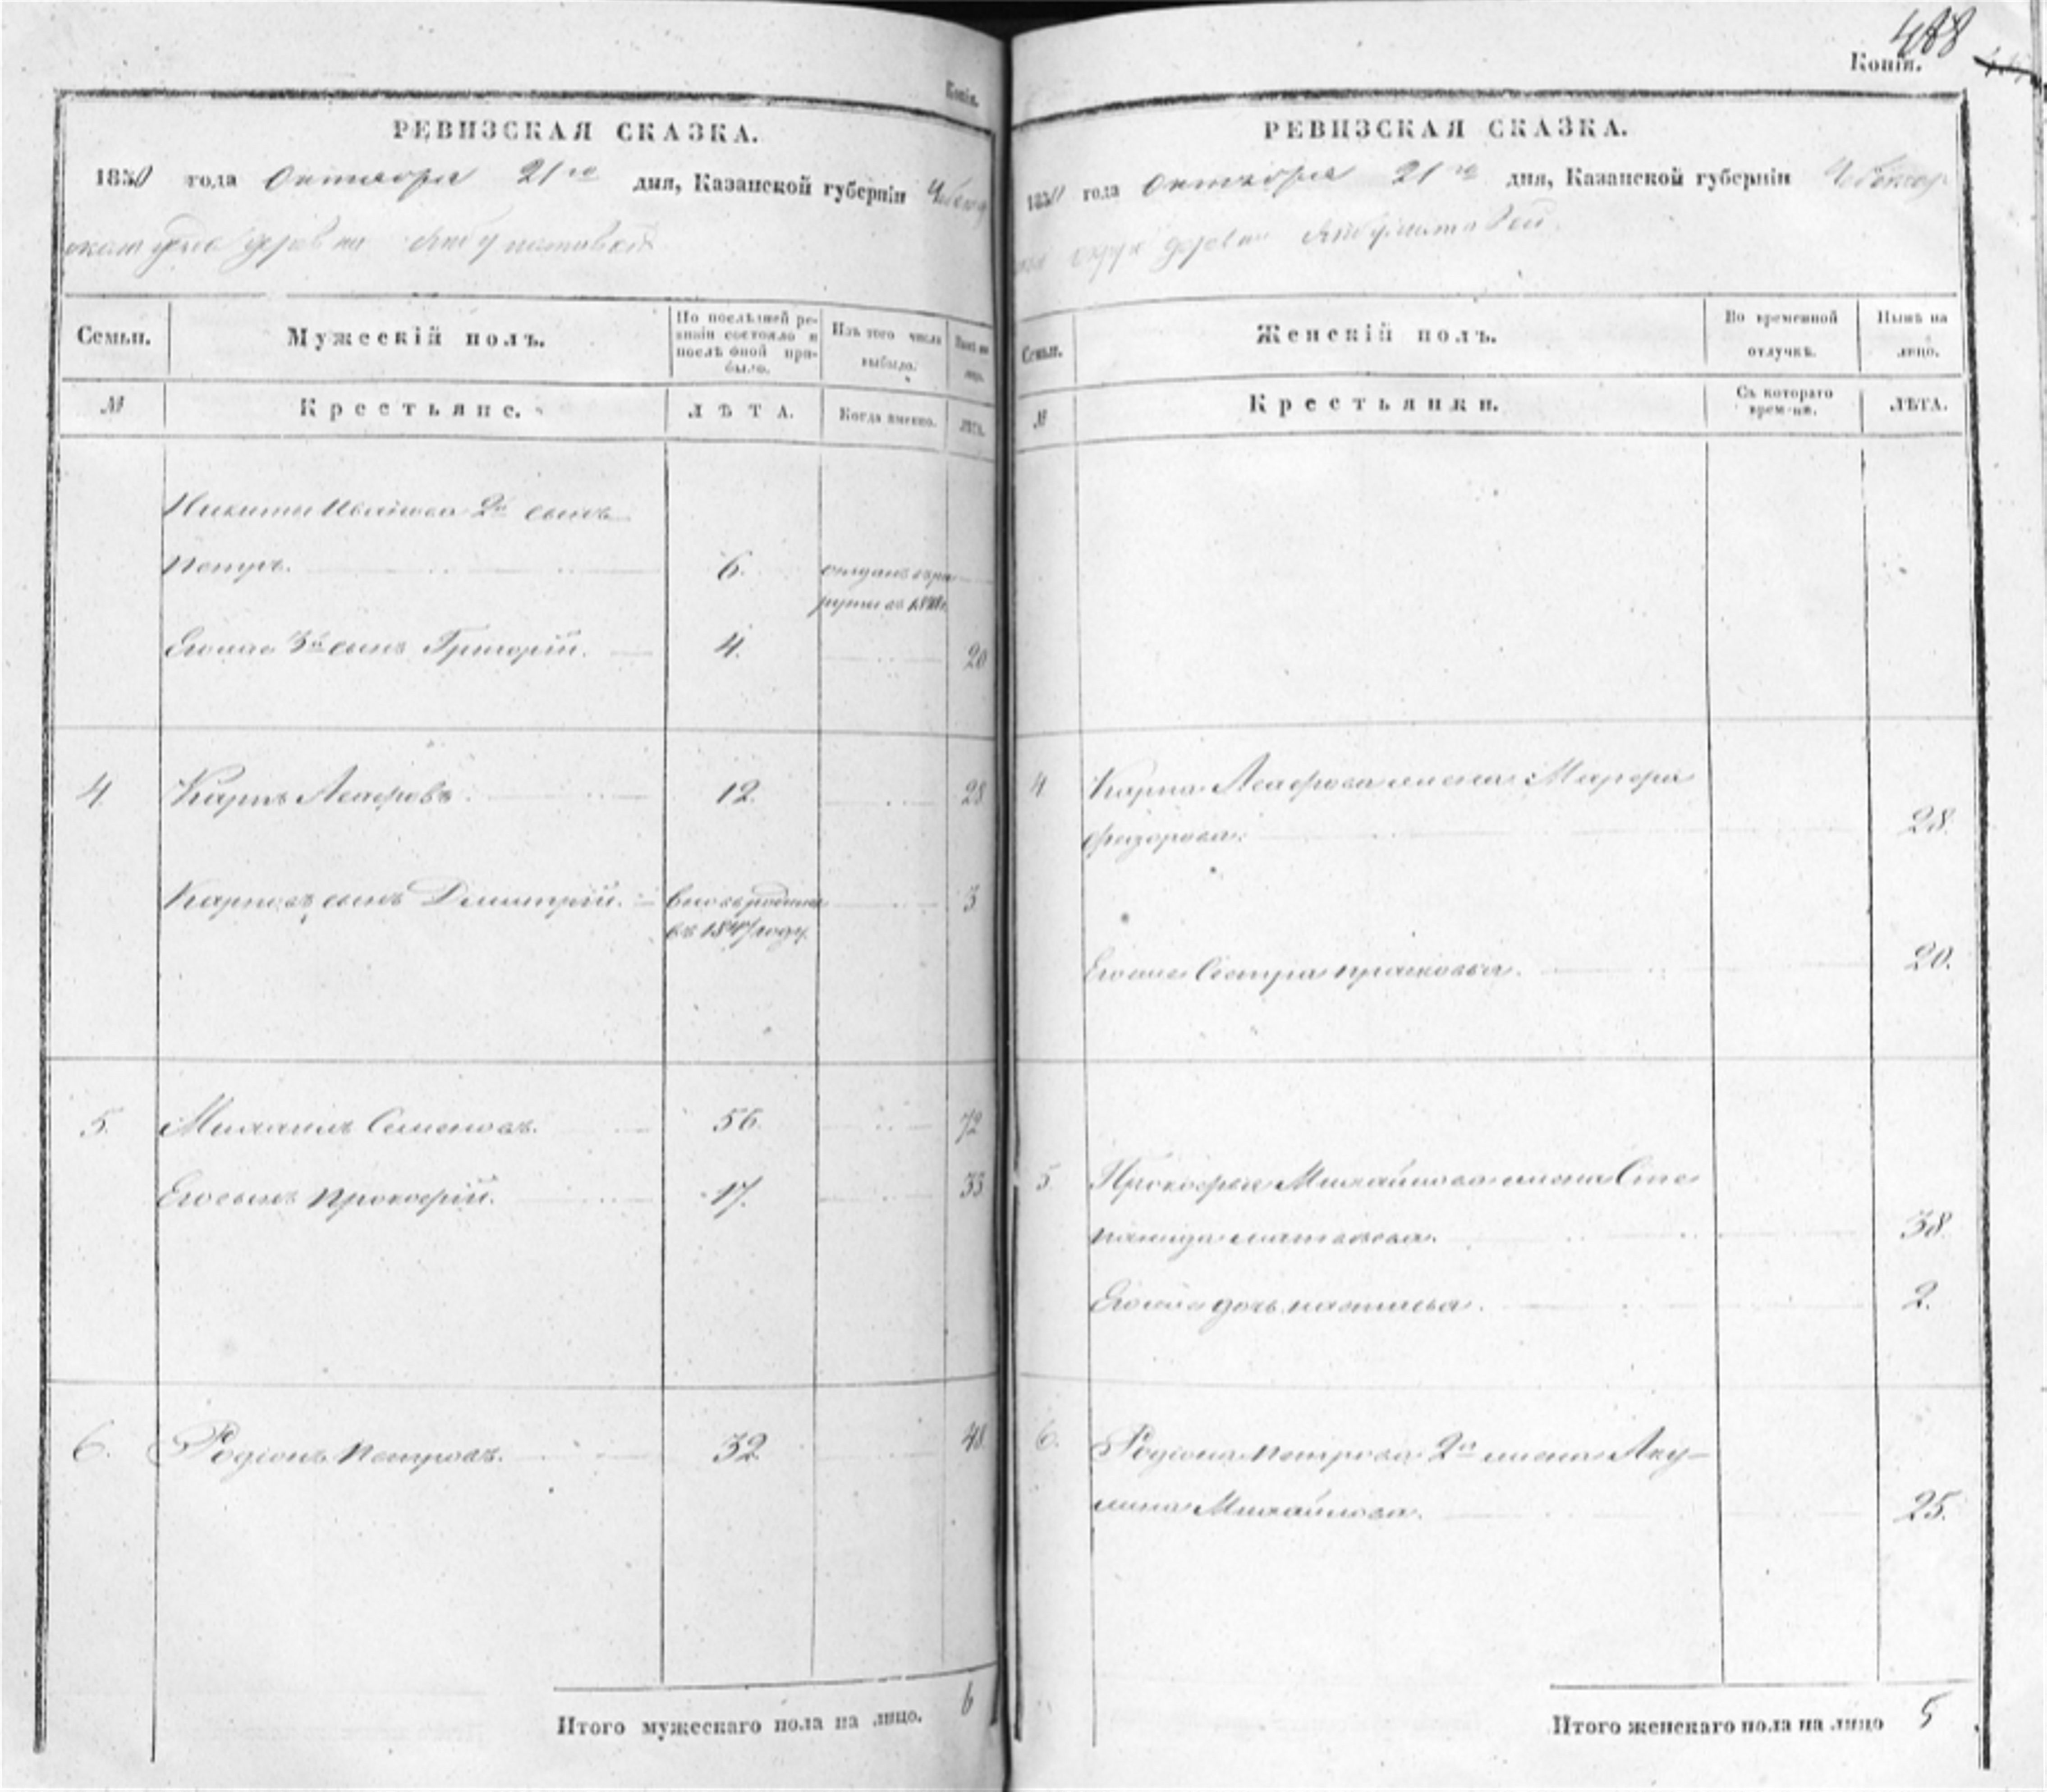 Копія.
РЕВИЗСКАЯ СКАЗКА.
1850 года Октября 21го дня, Казанской губерніи
деревни
Семьи.
Мужескій полъ.
По послѣдней ре-
визіи состояло и
послѣ оной при-
было.
Изъ того числа
выбыло.
Нынѣ на
лицо.
№
Крестьяне.
ЛѢТА.
Когда именно.
ЛѢТА.
Никиты Иванова 2й сынъ
Петръ. 6. отданъ въ ре
круты въ 1848г.
Егоже 3й сынъ Григорій. 4. 20
4. Карпъ 12. 28
Карповъ сынъ Димитрій. вновь рожденъ 3
въ 1847 году.
5. Михаилъ Семеновъ. 56. 72
Его сынъ Прокофій. 17. 33
6. Родіонъ Петровъ. 32 48
Итого мужескаго пола на лицо. 6
488
Копія.
РЕВИЗСКАЯ СКАЗКА.
1850 года Октября 21го дня, Казанской губерніи Чебоксар
округи деревни
Семьи.
Женскій полъ.
Во временной
отлучкѣ.
Нынѣ на
лицо.
№
Крестьянки.
Съ котораго
времени.
ЛѢТА.
4 Карпа жена Марфа
Федорова. 28.
Егоже Сестра Прасковья. 20.
5 Прокофья Михайлова жена Сте
панида Матвѣева. 38
Егоже дочь Настасья. 2.
6. Родіона Петрова 2я жена Аку-
лина Михайлова. 25.
Итого женскаго пола на лицо 5